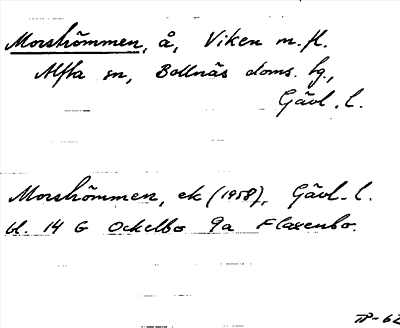 Morströmmen, å, Viken m.fl.
Alfta sn, Bollnäs doms. tg.,
Gävl. l.
Morströmmen, ek (1958), Gävl. l.
bl. 14 G Ockelbo 9a Flaxenbo.